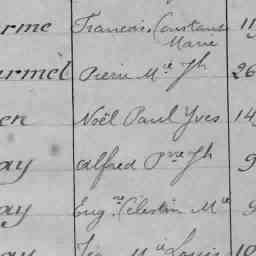 erme Francois, Constant 11
Marie
urmèl Pierre Mie Jh 26
en Noël Paul Yves 14
ay Alfred Pre Jh 9
ay Eugne Célestin Mie 9
ay Mie Louis 10